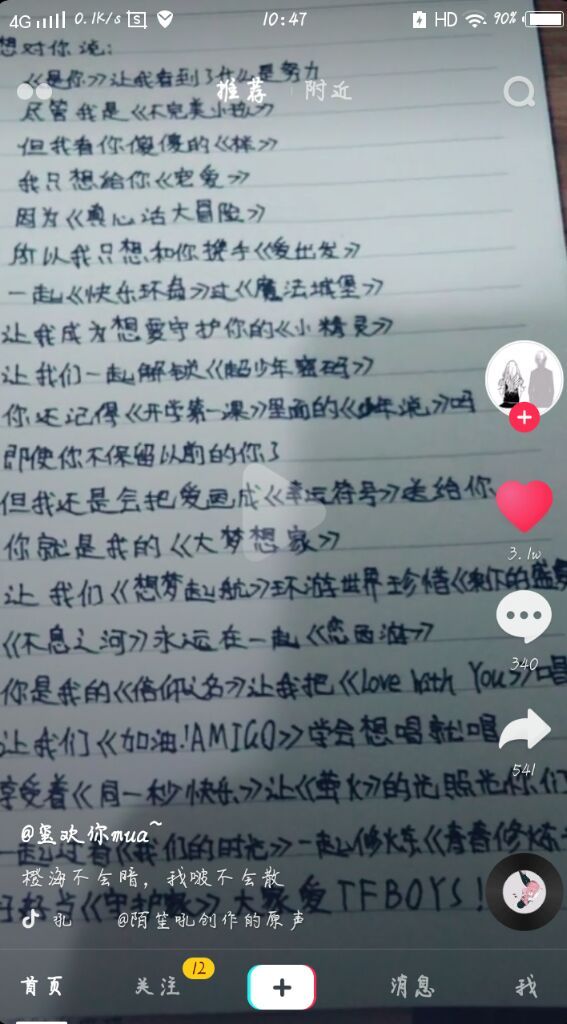 4G 0.1K/s 10:47 HD 90%
想对你说:
《是你》让我看到了什么是努力
推荐 附近
尽管我是《不完美小孩》
但我看你傻傻的《样》
我只想给你《宠爱》
因为《真心话大冒险》
所以我只想和你携手《爱出发》
一起《快乐环岛》过《魔法城堡》
让我成为想要守护你的《小精灵》
让我们一起解锁《超少年密码》
你还记得《开学第一课》里面的《少年说》吗
即使你不保留以前的你了
但我还是会把爱画成《幸运符号》送给你
你就是我的《大梦想家》
3.1w
让我们《想梦起航》环游世界珍惜《剩下的盛夏
《不息之河》永远在一起《恋西游》
340
你是我的《信仰之名》让我把《Love With You》唱
让我们《加油!AMIGO》学会想唱就唱
541
享受着《同一秒快乐》让《萤火》的光照光你们
@蛋欢你mua~
一起过着《我们的时光》一起修炼《青春修炼
橙海不会暗,我啵不会散
好好《守护家》大家爱TFBOYS!
吼 @陌笙吼创作的原声
首页 关注 12 消息 我